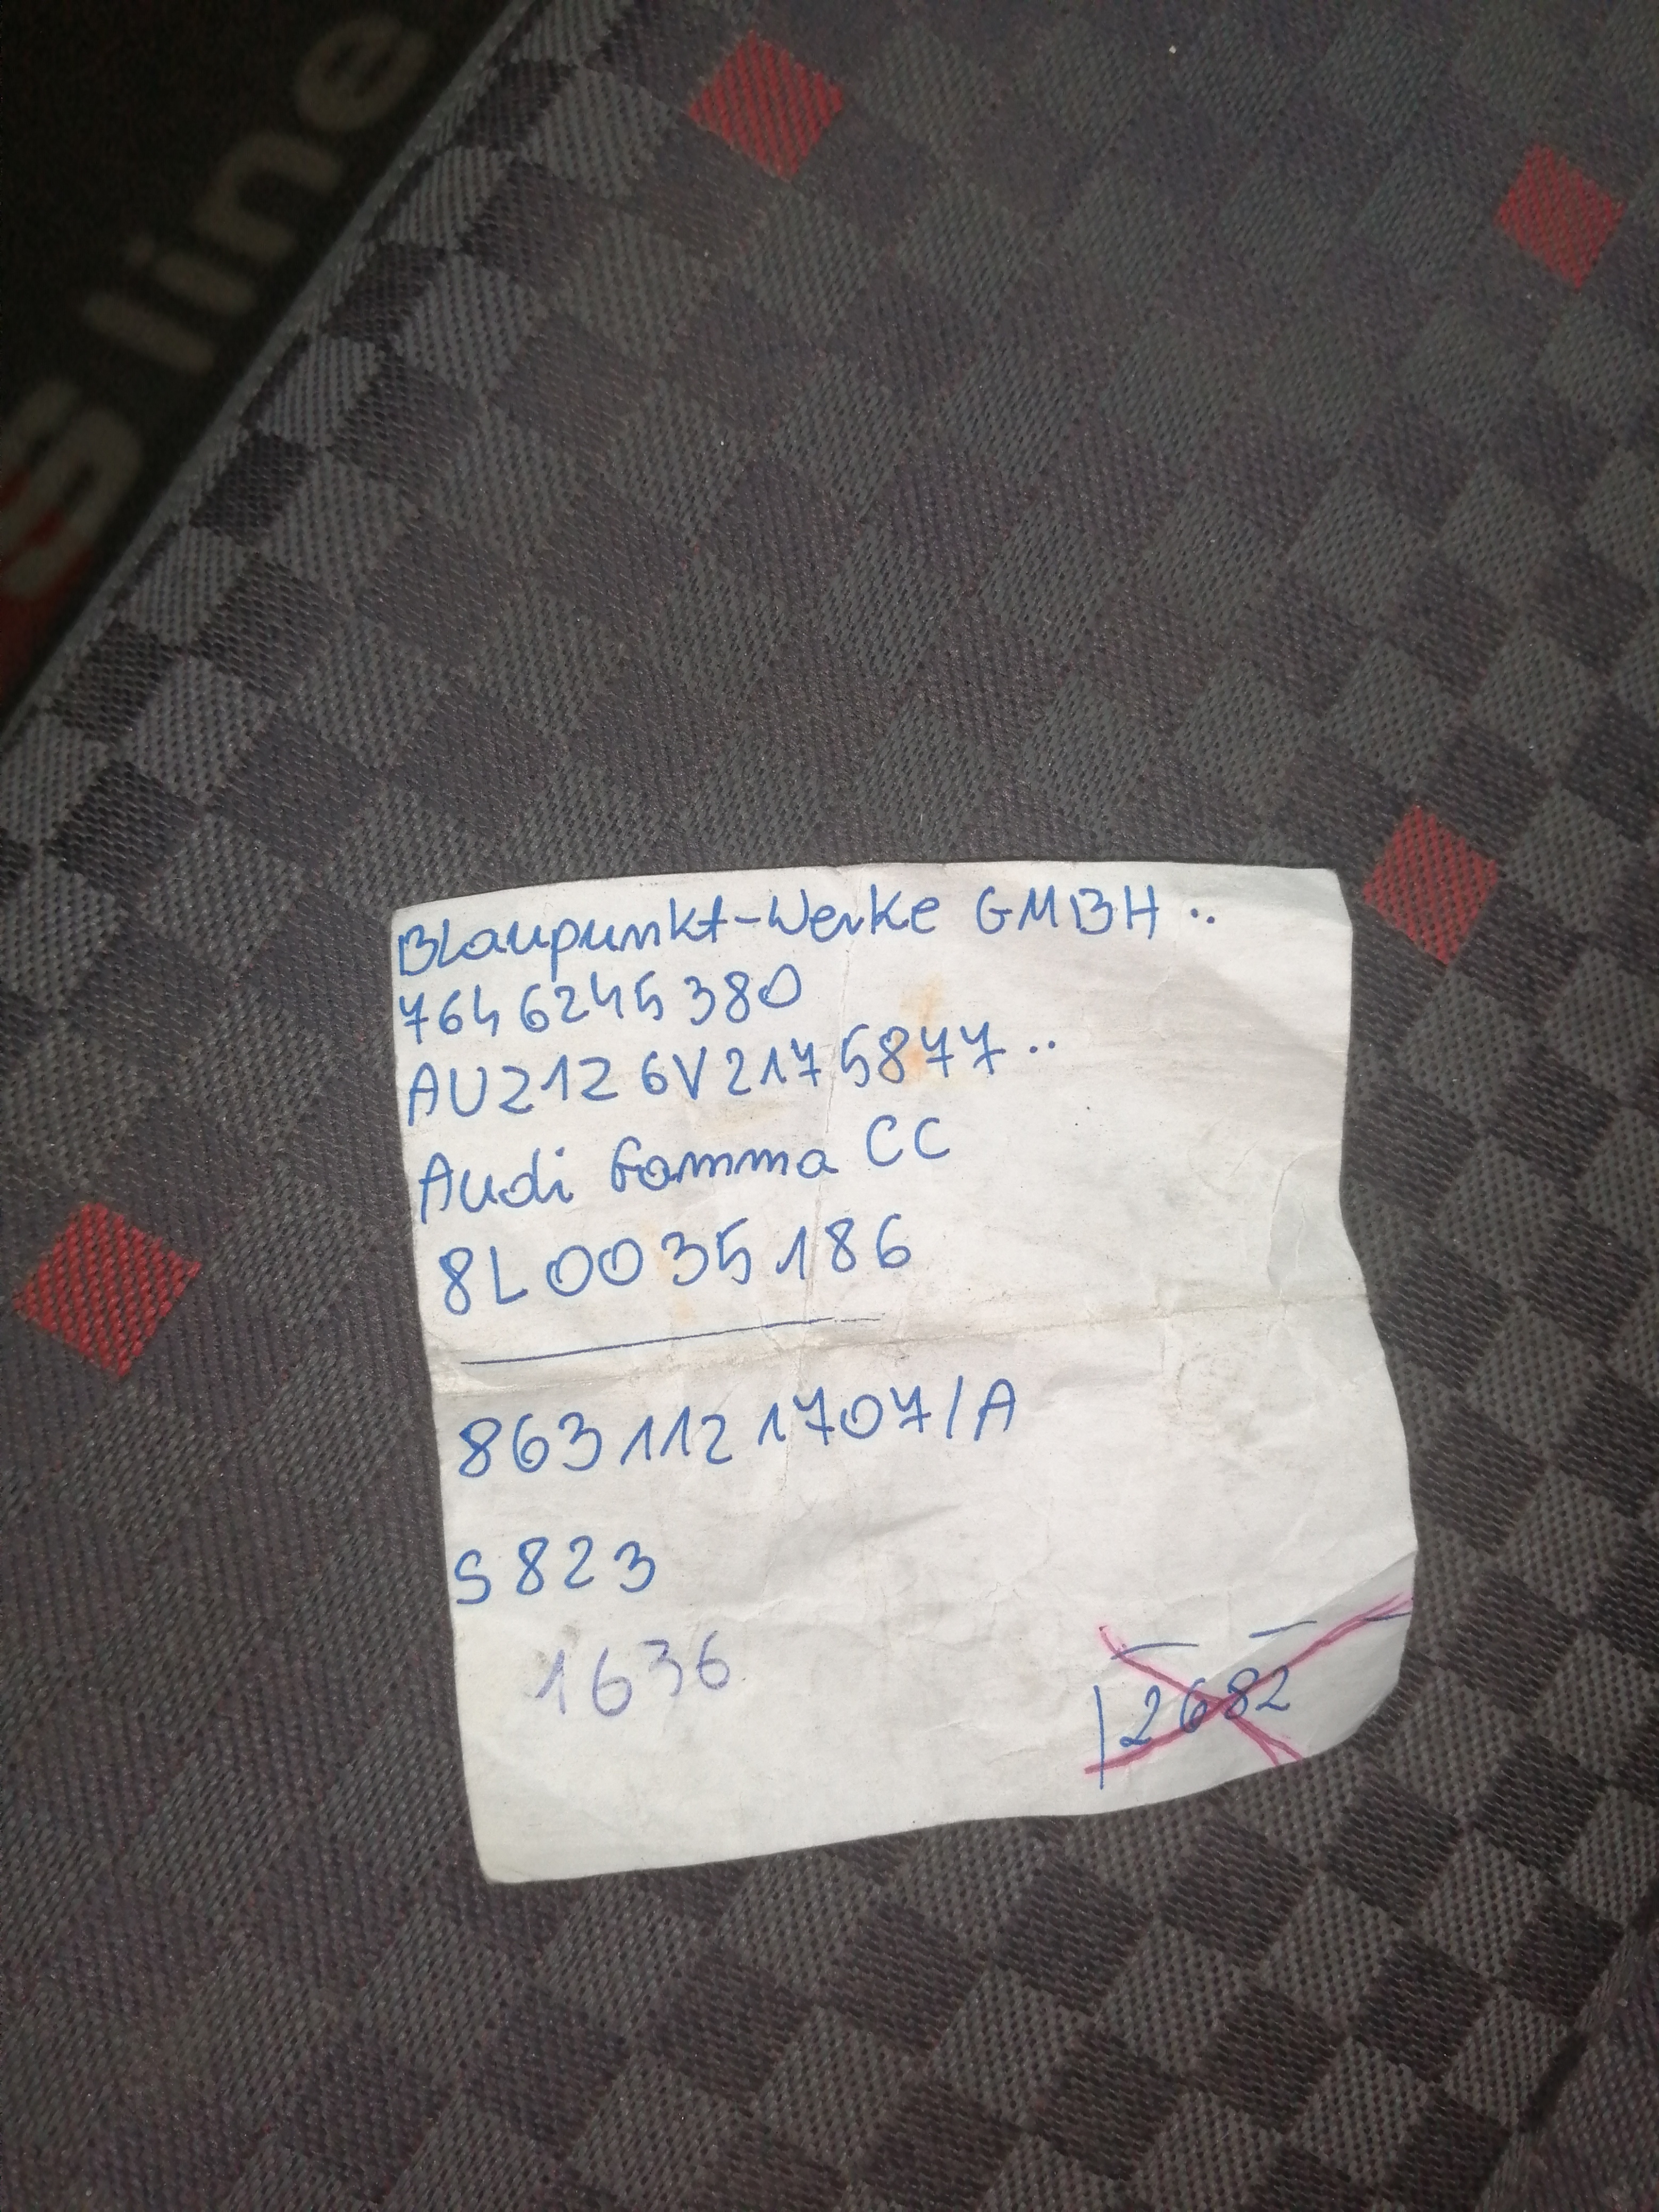 S line
Blaupunkt-Werke GMBH ..
7646245380
AUZ1Z6V2175877..
Audi Gamma CC
8L0035186
8631121707/A
S823
1636
2682